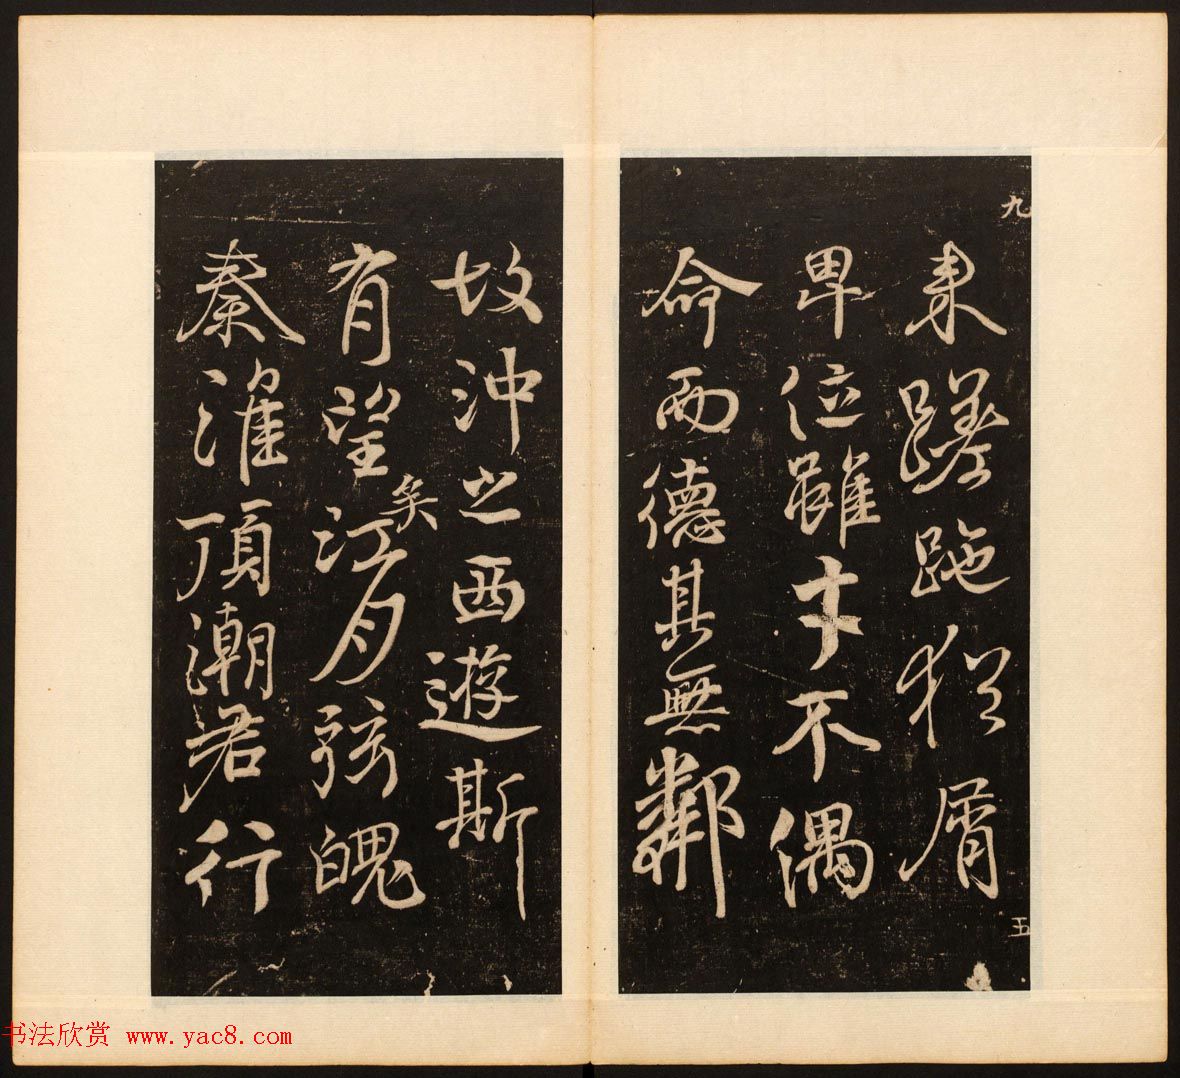 九
来蹉跎犹屑
卑位雖才不偶
命而德其無鄰
五
故沖之西遊斯
有望矣江月弦魄
秦淮頂潮君行
书法欣赏 www.yac8.com